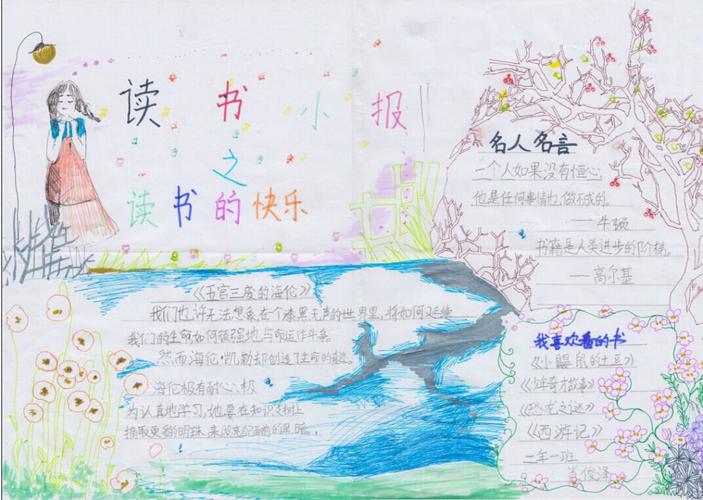 读书小报
之
读书的快乐
名人名言
一个人如果没有恒心,
他是任何事情也做不成的。
——牛顿
书籍是人类进步的阶梯。
——高尔基
《五官三废的海伦》
我们也许无法想象,在个漆黑无声的世界里,将如何延续
我们的生命如何顽强地与命运作斗争
然而海伦·凯勒却创造了生命的奇迹。
海伦极有耐心,极
为认真地学习,她要在知识
撷取更多的明珠,来
我喜欢看的书
《小鼹鼠的土豆》
《传奇故事》
《恐龙之谜》
《西游记》
二年一班
肖俊泽